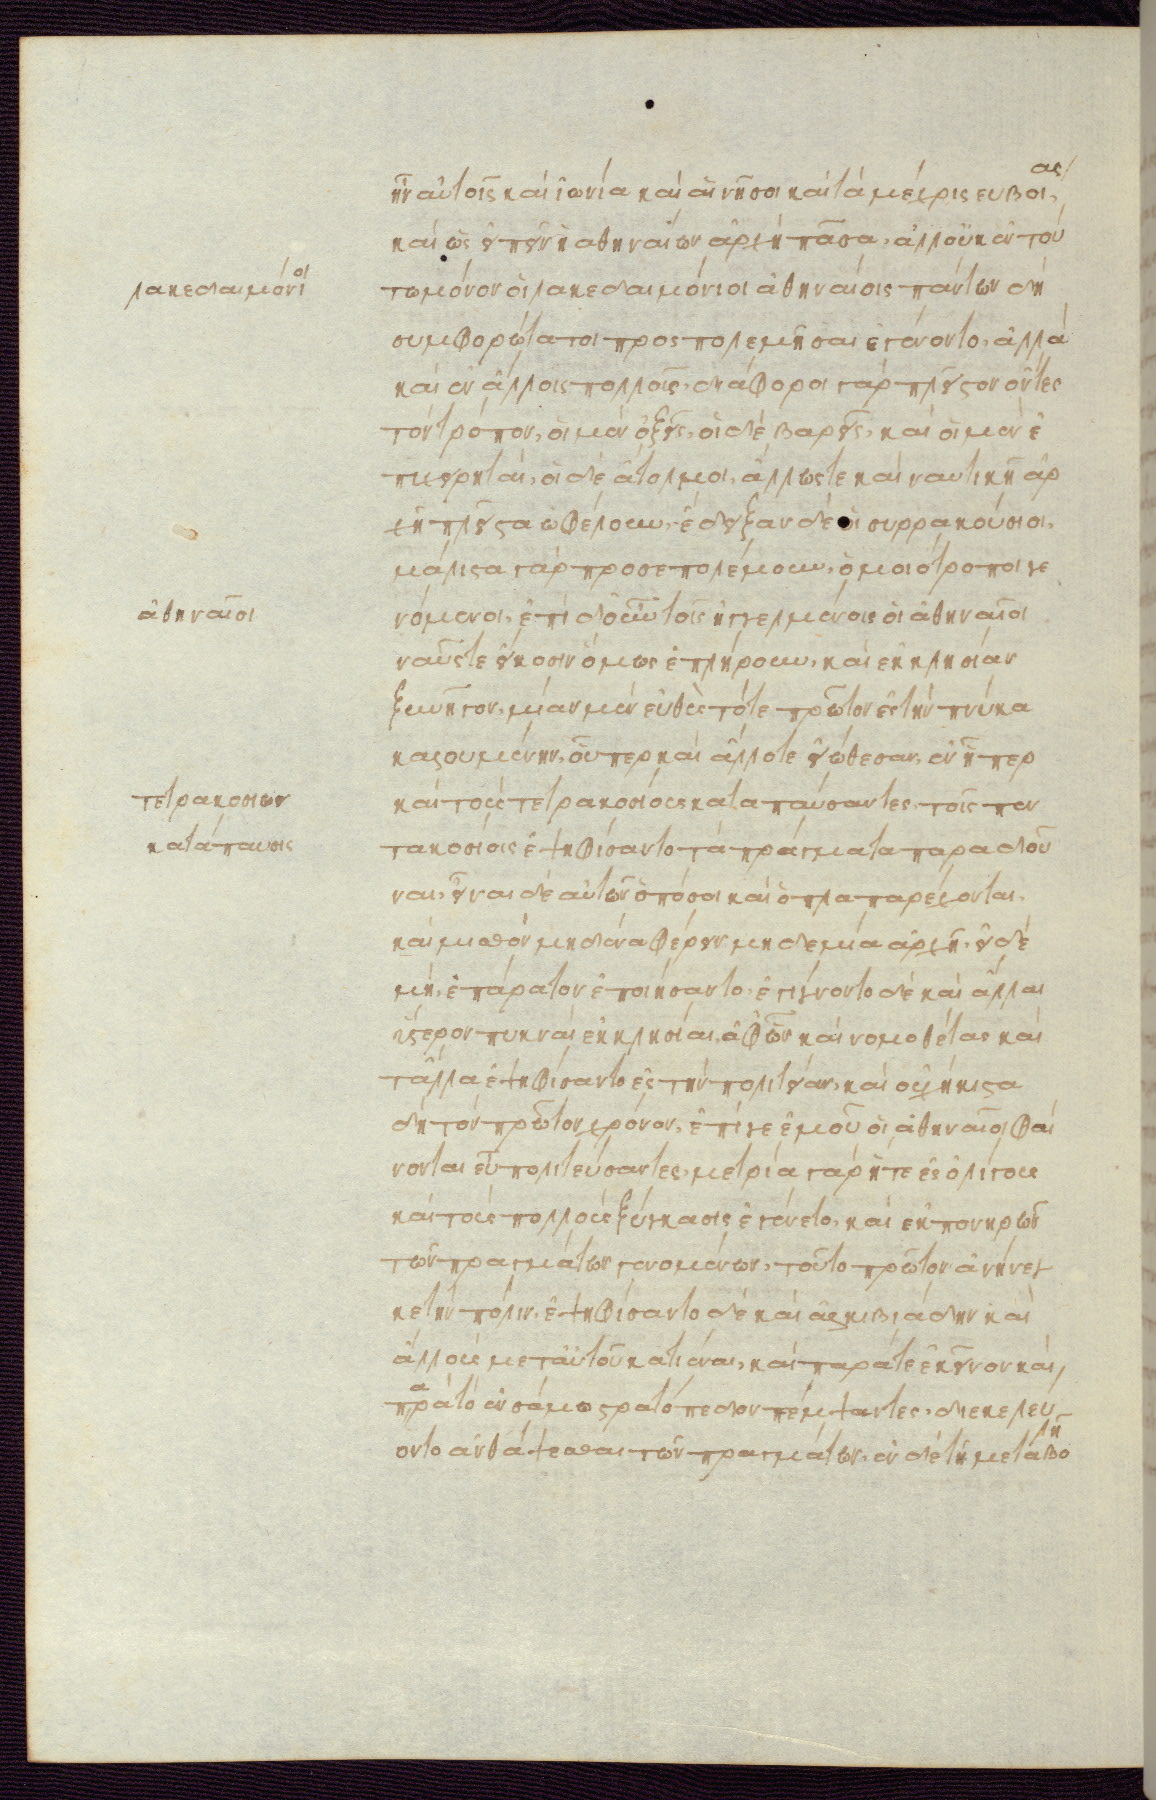 ἦν αὐτοῖς καὶ ἰωνία καὶ αἱ νῆσοι καὶ τὰ μέχρις ευβοίας,
καὶ ὡς εἰπεῖν ἡ αθηναίων ἀρχὴ πᾶσα, ἀλλ οὐκ ἐν τού
λακεδαιμόνιοι
τω μόνον ὁι λακεδαιμόνιοι ἀθηναίοις πάντων δὴ
συμφορώτατοι προς πολεμῆσαι ἐγένοντο, ἀλλὰ
καὶ ἐν ἄλλοις πολλοῖς, διάφοροι γὰρ πλεῖστον ὄντες
τὸν τρόπον, ὁι μὲν ὀξεῖς, ὁι δὲ βαρεῖς, καὶ ὁι μὲν ἐ
πιχειρηταὶ, ὁι δὲ ἄτολμοι, ἄλλως τε καὶ ναυτικῆ ἀρ
χῆ πλεῖστα ὠφέλουν, ἔδειξαν δὲ ὁι συρρακούσιοι,
μάλιστα γὰρ προσεπολέμουν, ὁμοιότροποι γε
ἀθηναῖοι
νόμενοι, ἐπὶ δ᾽ οὖν τοῖς ἠγγελμένοις ὁι ἀθηναῖοι
ναῦς τε εἴκοσιν ὅμως ἐπλήρουν, καὶ εκκλησίαν
ξυνῆγον, μίαν μὲν εὐθὺς τότε πρῶτον ἐς τὴν πνύκα
καλουμένην, οὗπερ καὶ ἄλλοτε εἰώθεσαν, ἐν ἧπερ
τετρακοσίων
καὶ τοὺς τετρακοσίους καταπαύσαντες, τοῖς πεν
κατάπαυσις
τακοσίοις ἐψηφίσαντο τὰ πράγματα παραδοῦ
ναι, εἶναι δὲ αὐτῶν ὁπόσοι καὶ ὅπλα παρέχονται,
καὶ μισθὸν μηδένα φέρειν μηδεμία ἀρχῆ, εἰ δὲ
μὴ, ἐπάρατον ἐποιήσαντο, ἐγίγνοντο δὲ καὶ ἄλλαι
ὕστερον πυκναὶ εκκλησίαι, ἀφ ὧν καὶ νομοθέτας καὶ
τἄλλα ἐψηφίσαντο ἐς τὴν πολιτείαν, καὶ οὐχ ἥκιστα
δὴ τὸν πρῶτον χρόνον, ἐπί γε ἐμοῦ ὁι ἀθηναῖοι φαί
νονται εὖ πολιτεύσαντες, μετρία γὰρ ἥ τε ἐς ὀλίγους
καὶ τοὺς πολλοὺς ξύγκρασις ἐγένετο, καὶ εκ πονηρῶν
τῶν πραγμάτων γενομένων, τοῦτο πρῶτον ἀνήνεγ
κε τὴν πόλιν, ἐψηφίσαντο δὲ καὶ ἀλκιβιάδην καὶ
ἄλλους μετ αὐτοῦ κατιέναι, καὶ παρά τε ἐκεῖνον καὶ
παρὰ τὸ ἐν σάμω στρατόπεδον πέμψαντες, διεκελεύ
οντο ἀνθάψεσθαι τῶν πραγμάτων, ἐν δὲ τῆ μεταβολῆ